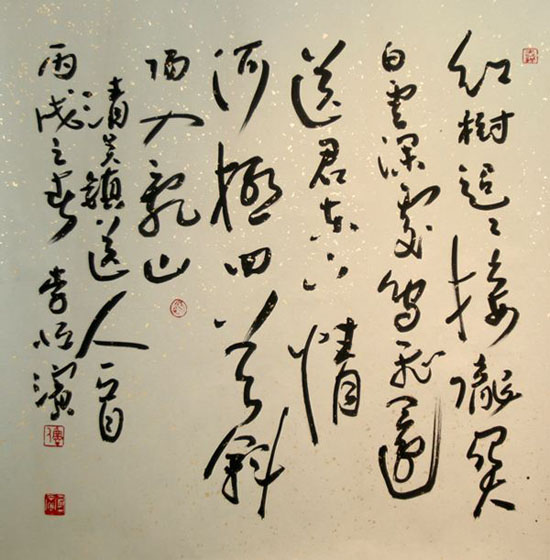 红树迢迢接
白云深处鸟飞还
送君东下情
何极回首斜
阳入乱山
清吴镇送人一首
丙戌之春 李恒